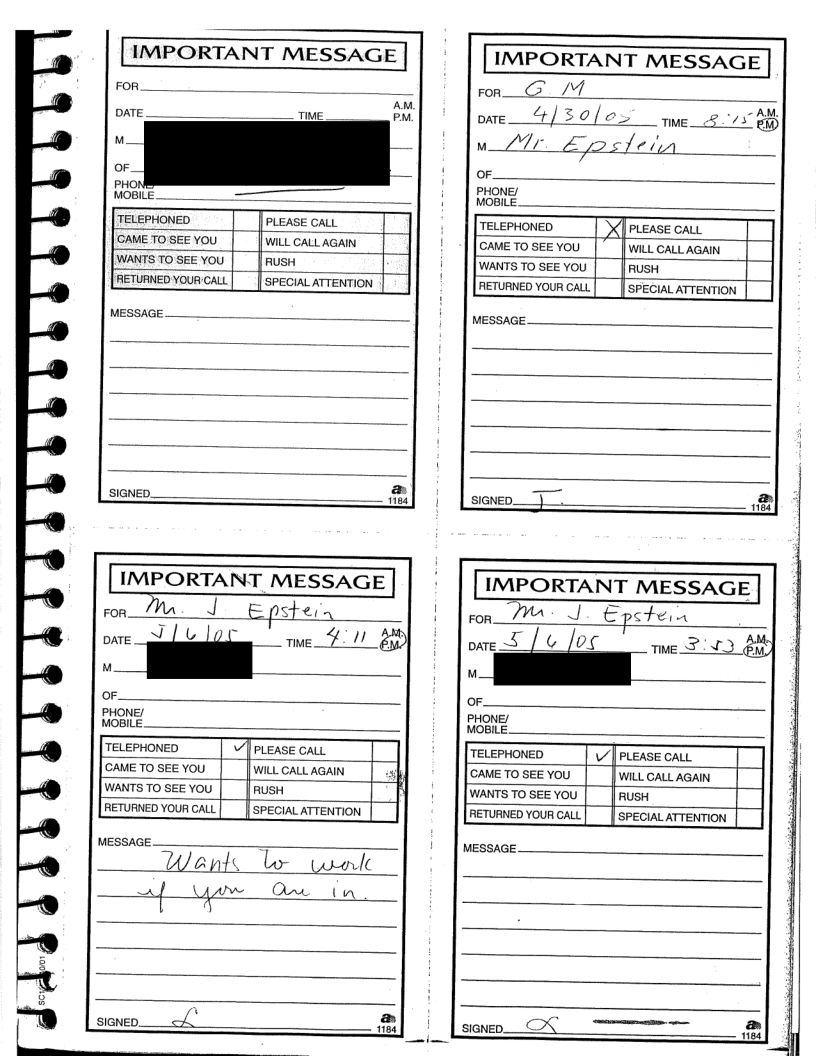 IMPORTANT MESSAGE
FOR
DATE TIME A.M. P.M.
M
OF
PHONE/
MOBILE
TELEPHONED PLEASE CALL
CAME TO SEE YOU WILL CALL AGAIN
WANTS TO SEE YOU RUSH
RETURNED YOUR CALL SPECIAL ATTENTION
MESSAGE
SIGNED
1184
IMPORTANT MESSAGE
FOR G M
DATE 4/30/05 TIME 8:15 A.M. P.M.
M Mr. Epstein
OF
PHONE/
MOBILE
TELEPHONED X PLEASE CALL
CAME TO SEE YOU WILL CALL AGAIN
WANTS TO SEE YOU RUSH
RETURNED YOUR CALL SPECIAL ATTENTION
MESSAGE
SIGNED J.
1184
IMPORTANT MESSAGE
FOR Mr. J. Epstein
DATE 5/6/05 TIME 4:11 A.M. P.M.
M
OF
PHONE/
MOBILE
TELEPHONED ✓ PLEASE CALL
CAME TO SEE YOU WILL CALL AGAIN
WANTS TO SEE YOU RUSH
RETURNED YOUR CALL SPECIAL ATTENTION
MESSAGE
Wants to work
if you are in.
SIGNED
1184
IMPORTANT MESSAGE
FOR Mr. J. Epstein
DATE 5/6/05 TIME 3:53 A.M. P.M.
M
OF
PHONE/
MOBILE
TELEPHONED ✓ PLEASE CALL
CAME TO SEE YOU WILL CALL AGAIN
WANTS TO SEE YOU RUSH
RETURNED YOUR CALL SPECIAL ATTENTION
MESSAGE
SIGNED
1184